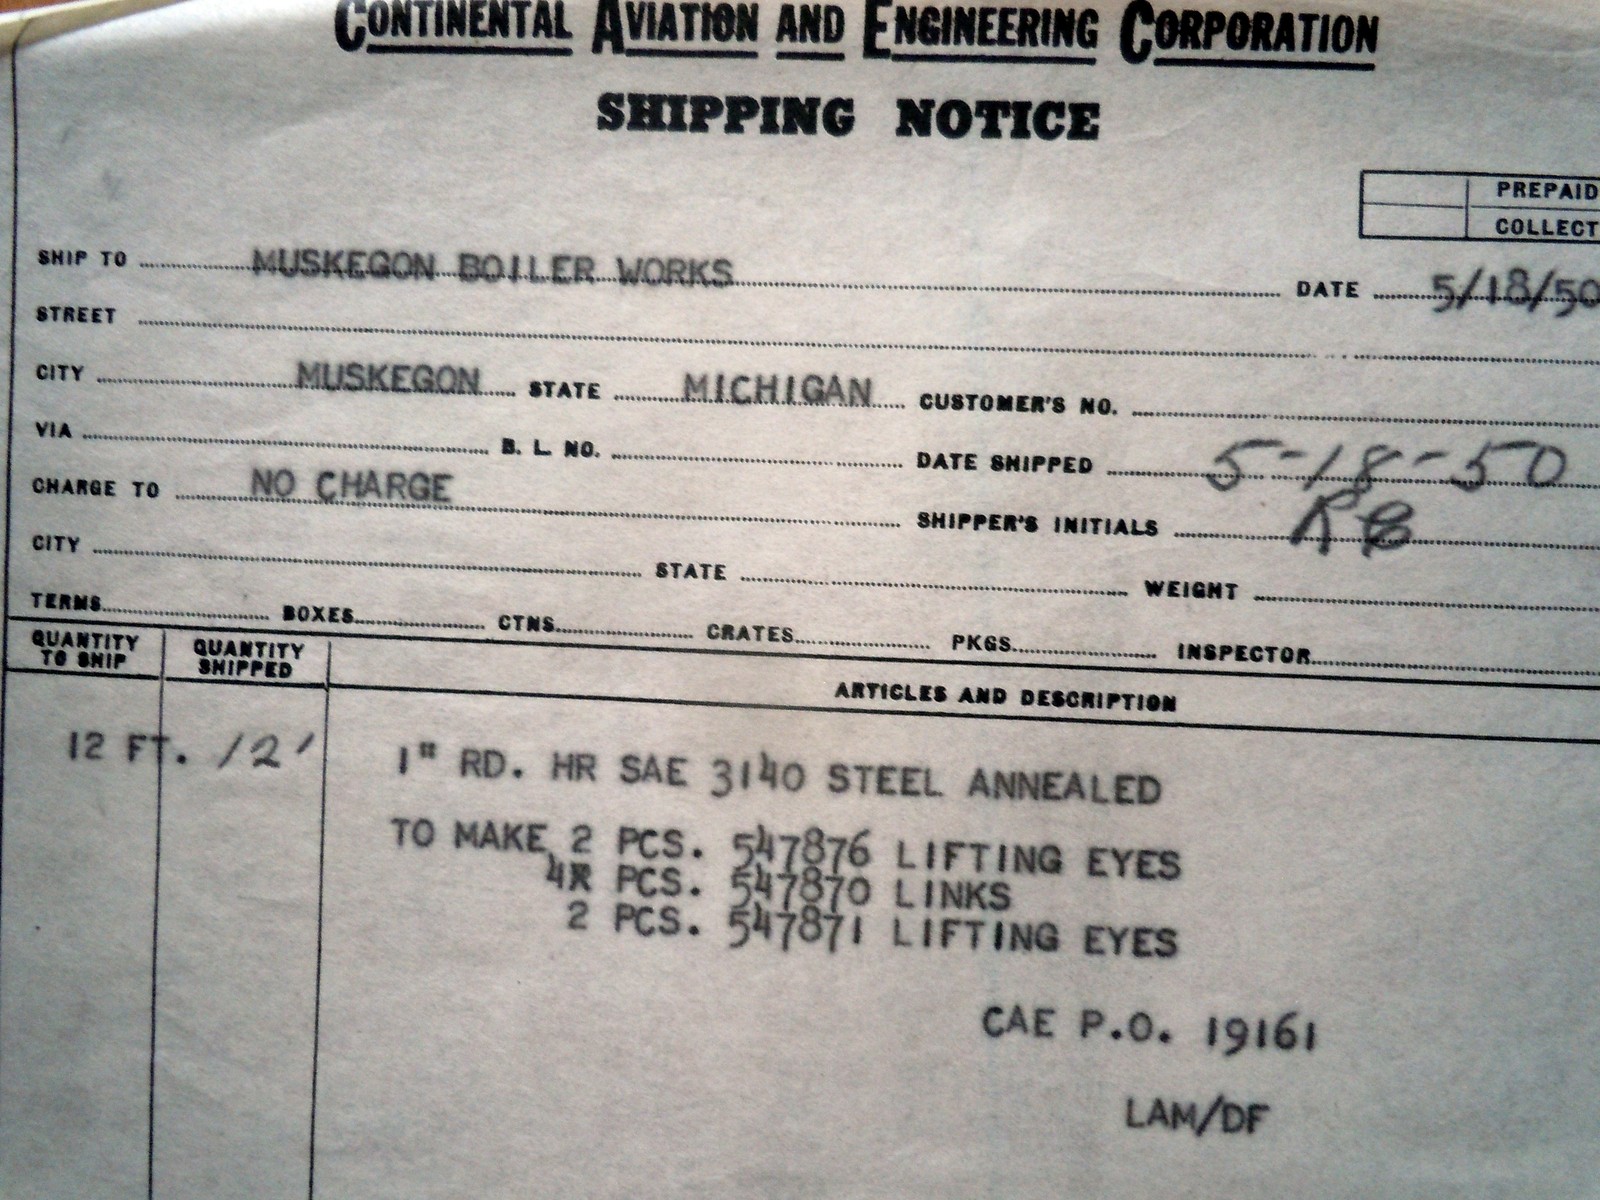 CONTINENTAL AVIATION AND ENGINEERING CORPORATION
SHIPPING NOTICE
PREPAID
COLLECT
SHIP TO MUSKEGON BOILER WORKS DATE 5/18/50
STREET
CITY MUSKEGON STATE MICHIGAN CUSTOMER'S NO.
VIA B. L. NO. DATE SHIPPED 5-18-50
CHARGE TO NO CHARGE SHIPPER'S INITIALS RB
CITY STATE WEIGHT
TERMS BOXES CTNS. CRATES PKGS. INSPECTOR
QUANTITY TO SHIP QUANTITY SHIPPED ARTICLES AND DESCRIPTION
12 FT. 12' 1" RD. HR SAE 3140 STEEL ANNEALED
TO MAKE 2 PCS. 547876 LIFTING EYES
4 PCS. 547870 LINKS
2 PCS. 547871 LIFTING EYES
CAE P.O. 19161
LAM/DF